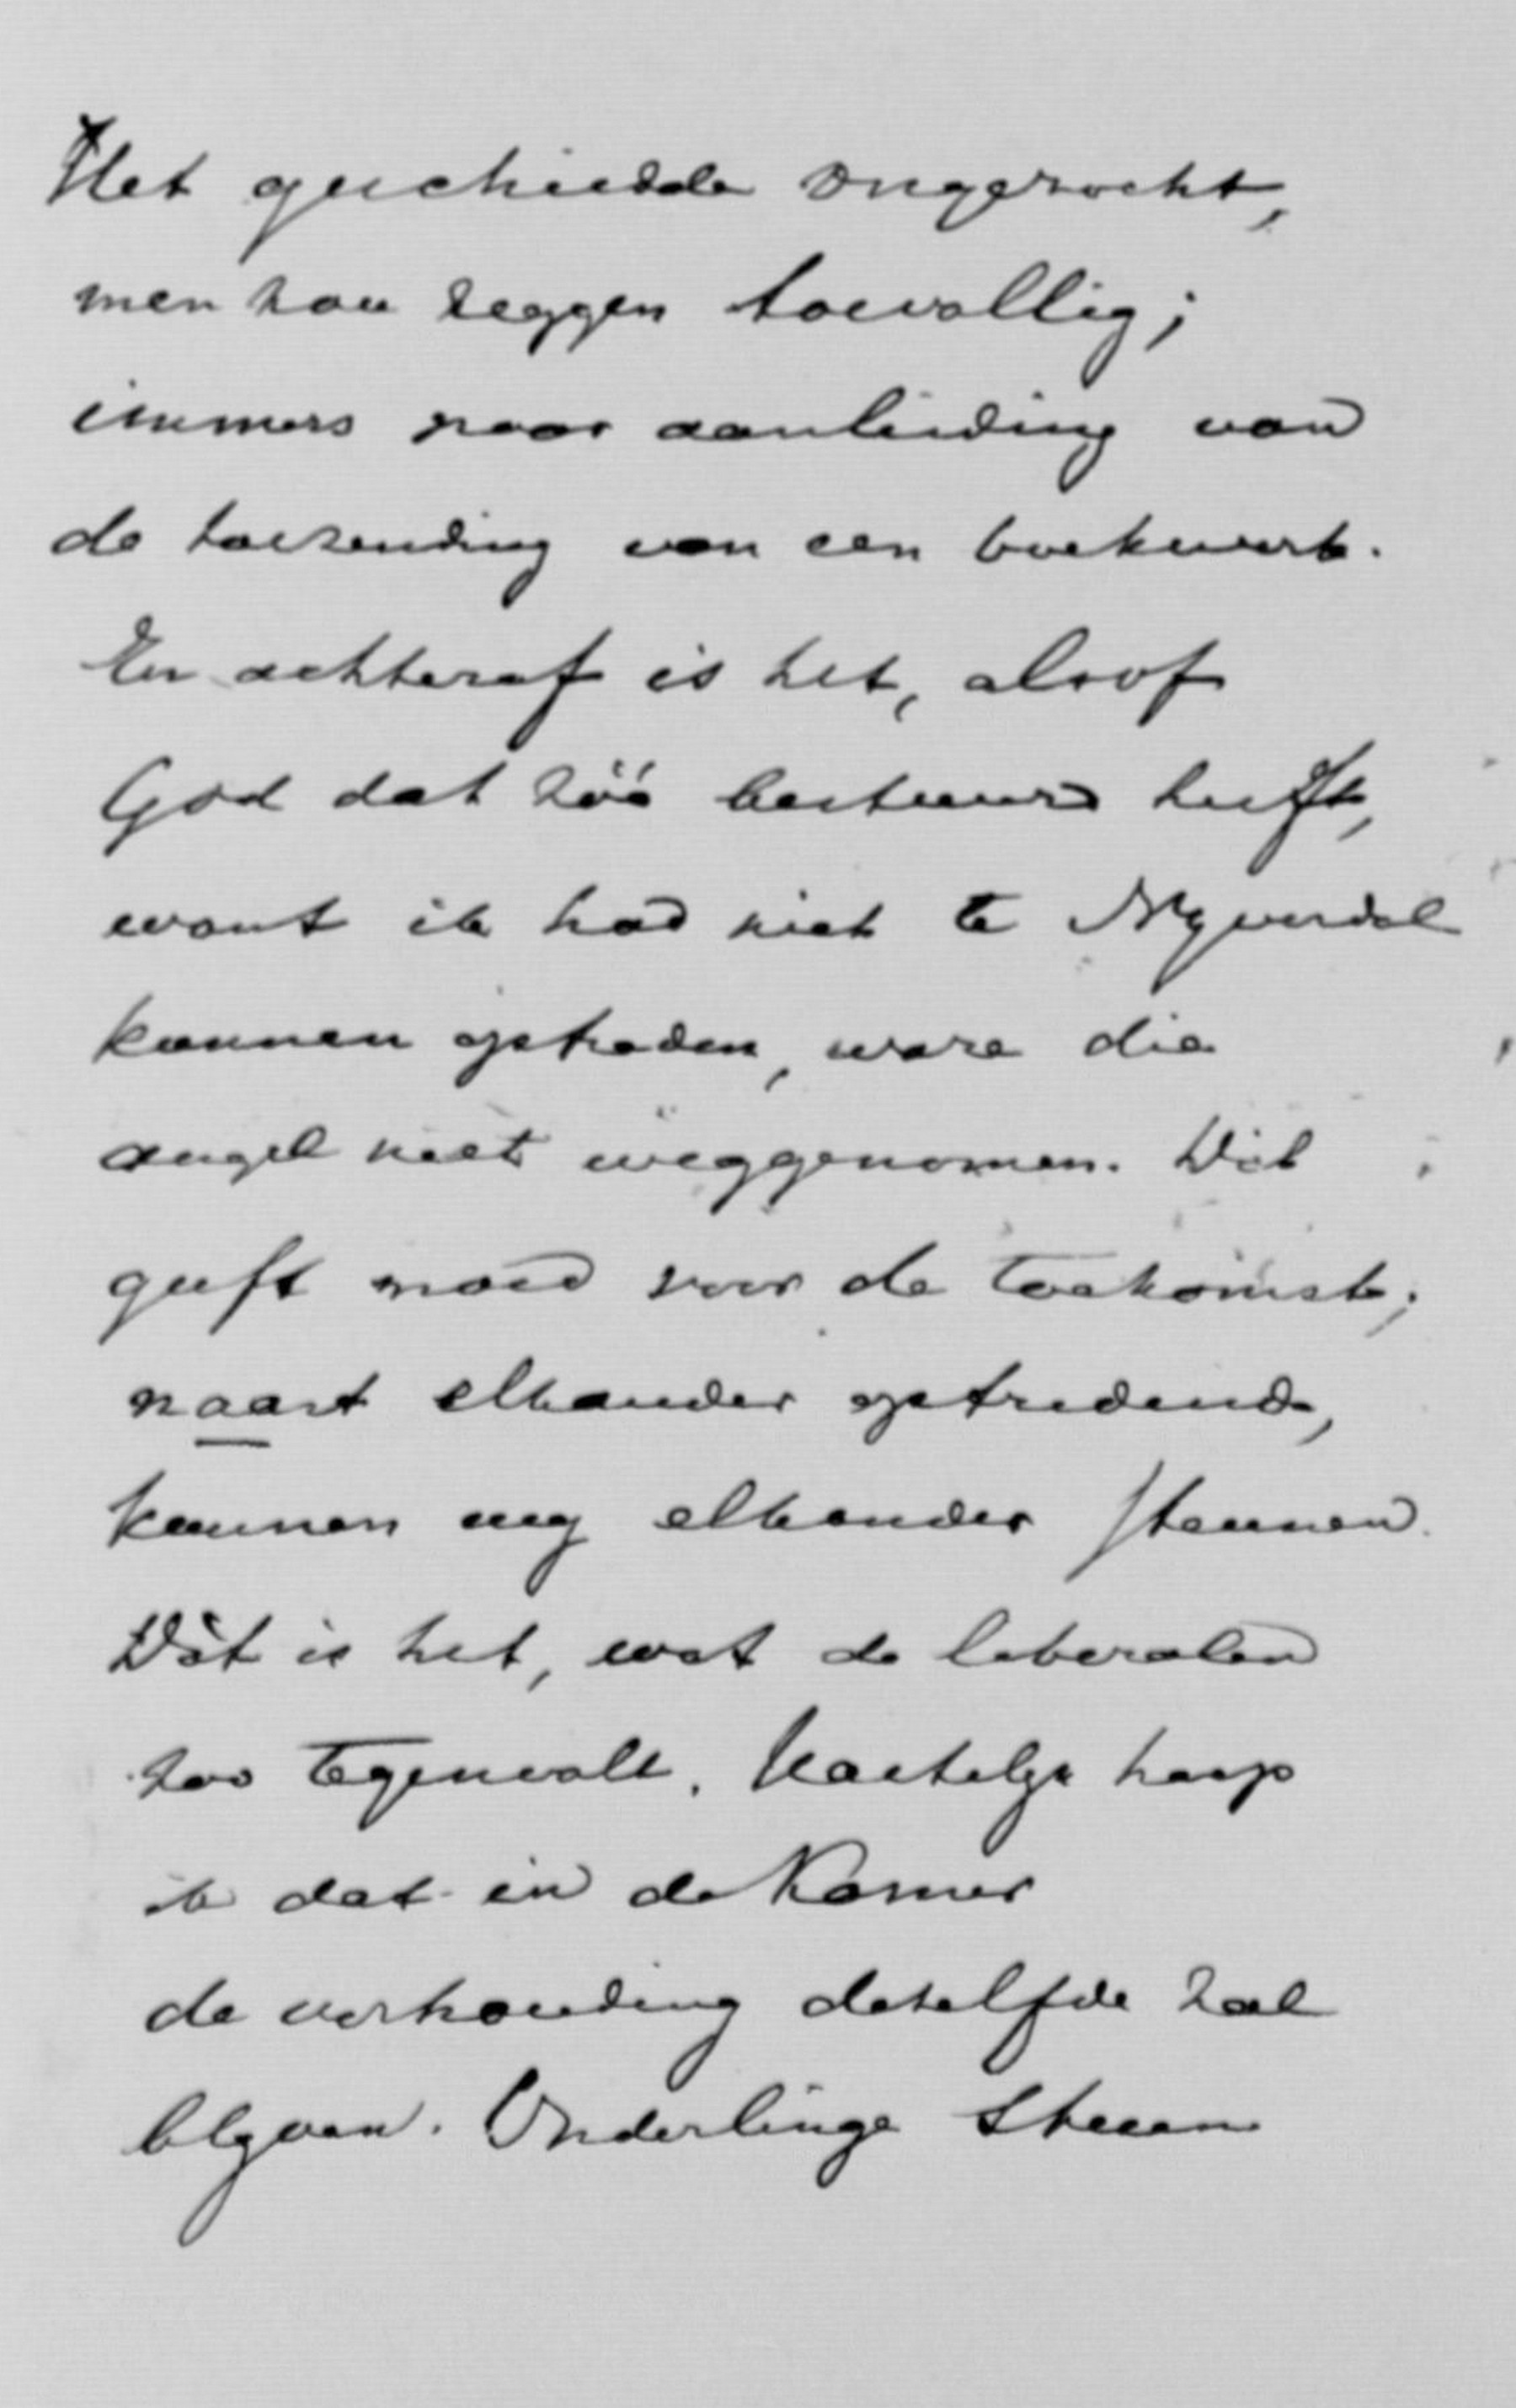 Het geschiedde ongezocht,
men zou zeggen toevallig;
immers naar aanleiding van
de toezending van een boekwerk.
En achteraf is het, alsof
God dat zóó bestuurd heeft,
want ik had niet te Nijverdal
kunnen optreden, ware die
angel niet weggenomen. Dit
geeft moed voor de toekomst;
naast elkander optredend,
kunnen wij elkander steunen.
Dàt is het, wat de liberalen
zoo tegenvalt. Hartelijk hoop
ik dat in de Kamer
de verhouding dezelfde zal
blijven. Onderlinge steun